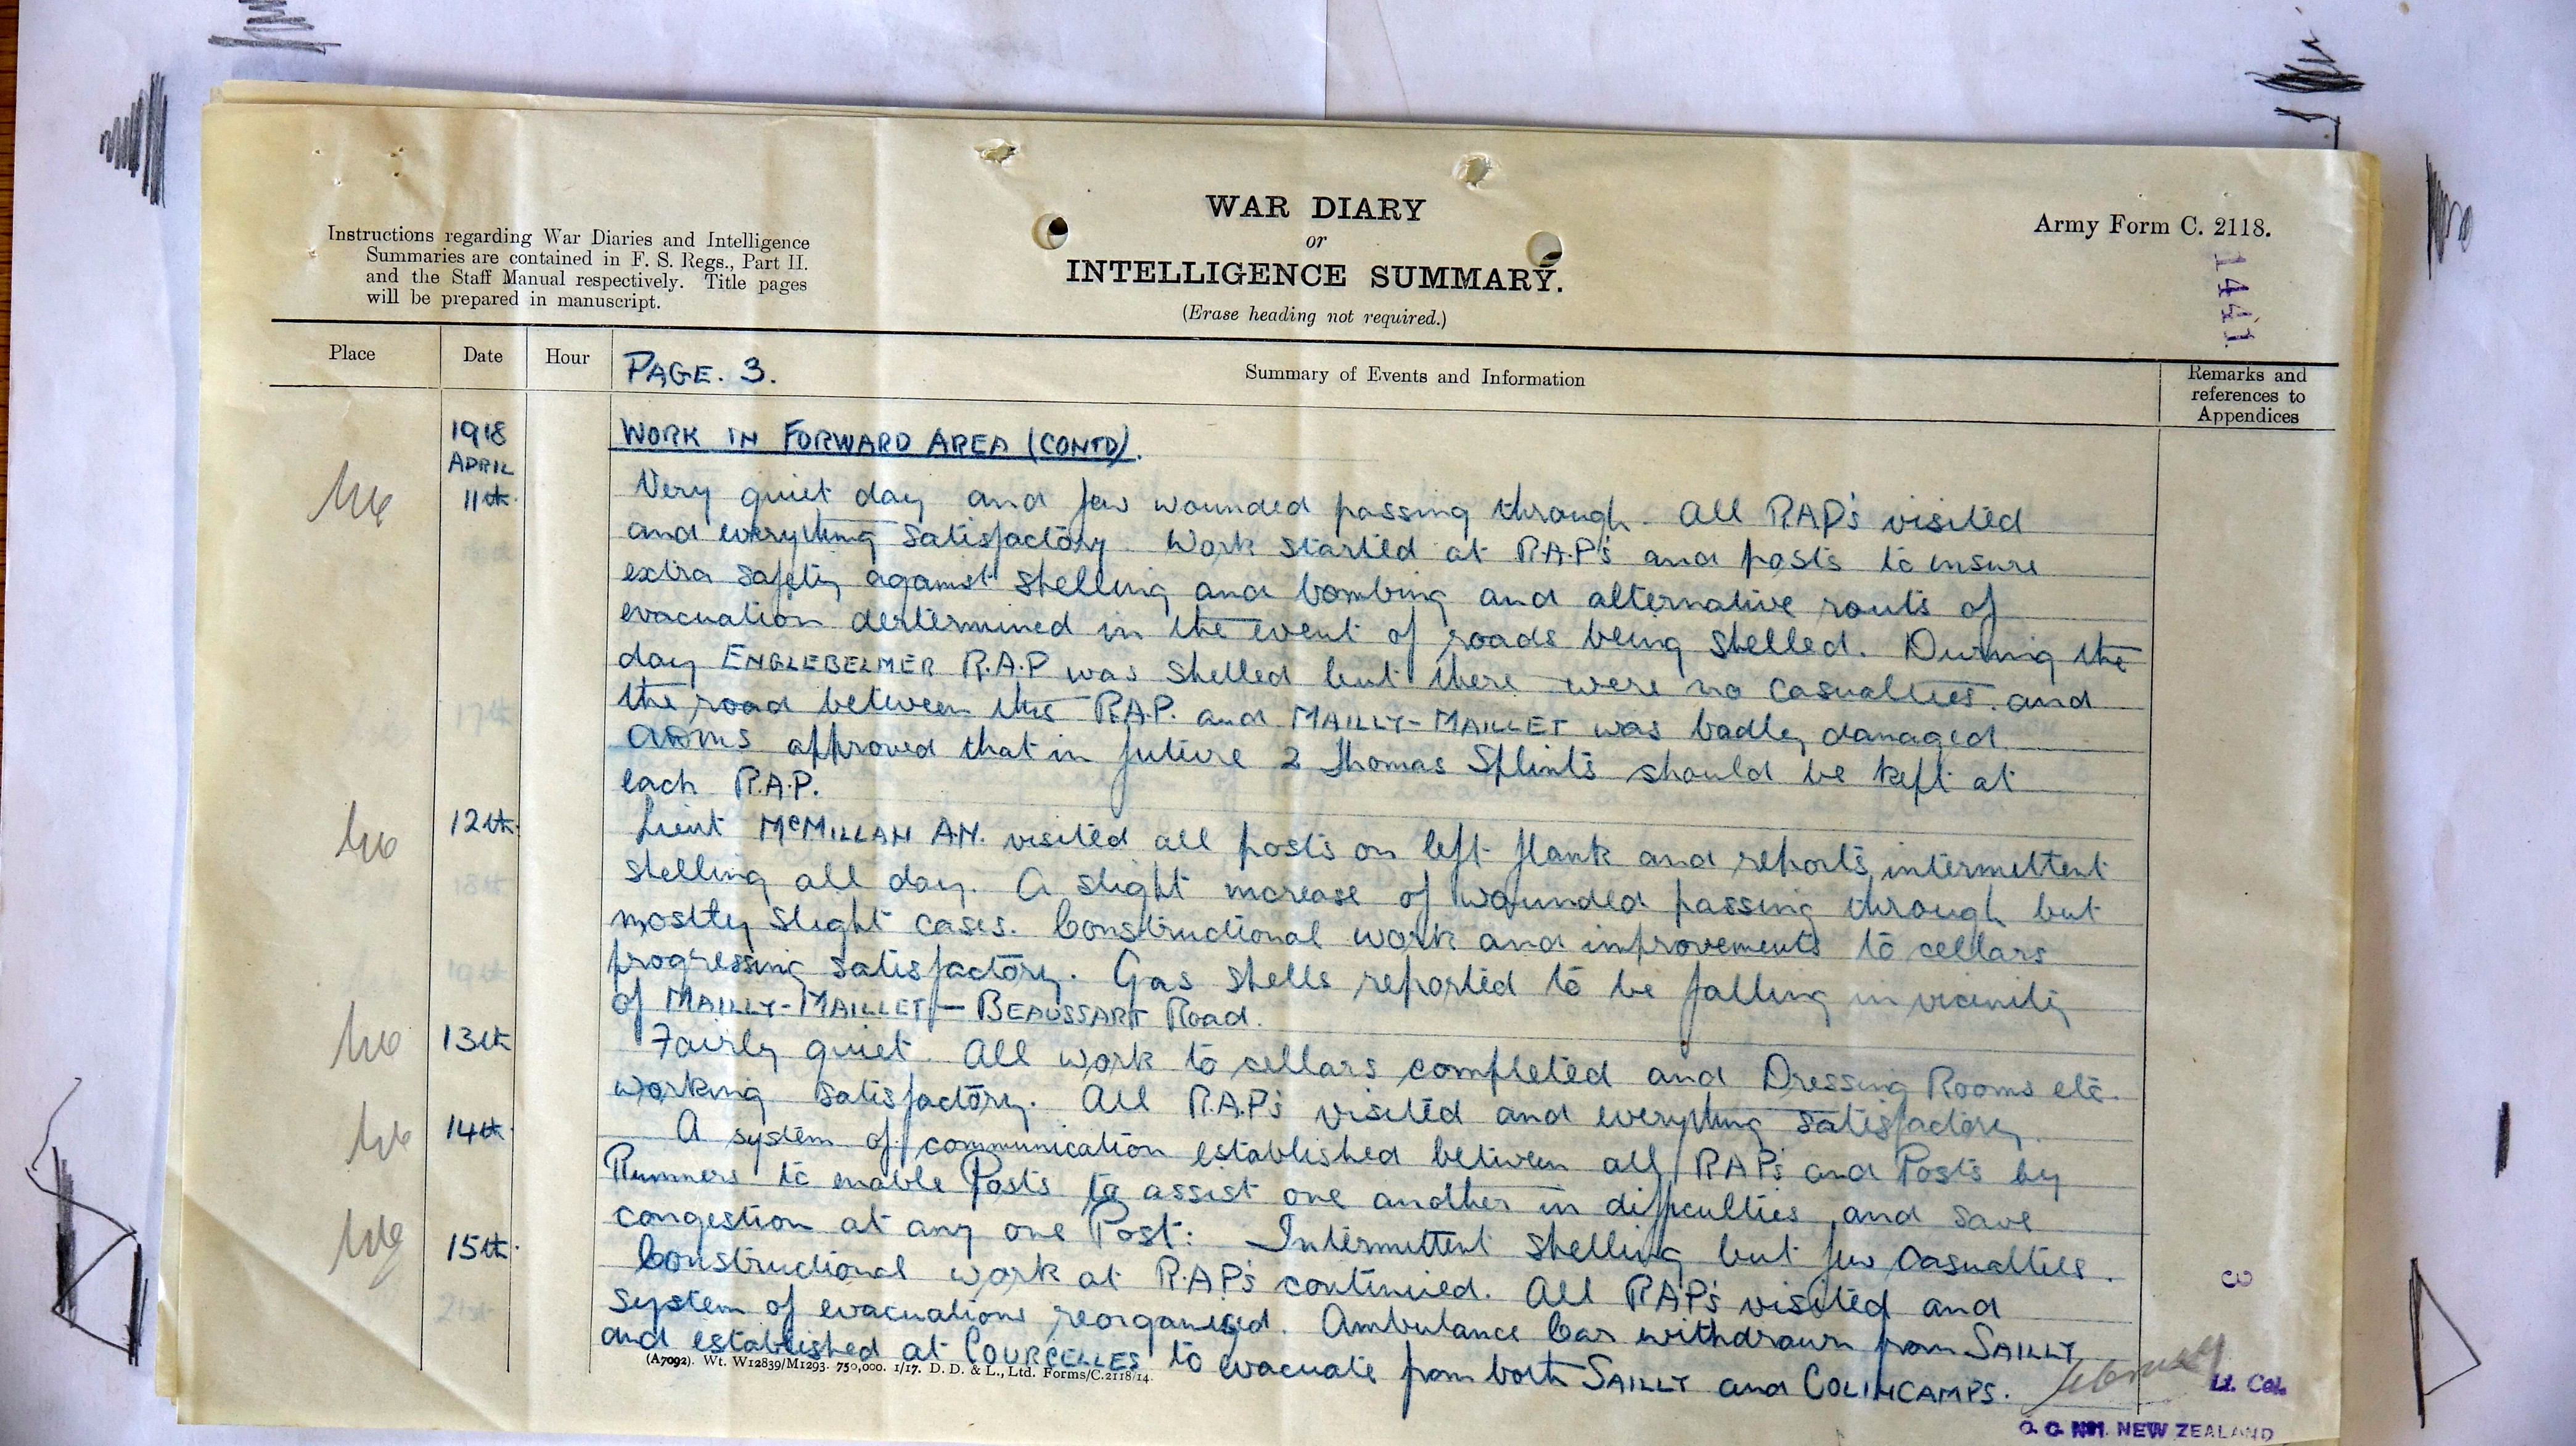 WAR DIARY
or
INTELLIGENCE SUMMARY.
(Erase heading not required.)
Army Form C. 2118.
1441
Instructions regarding War Diaries and Intelligence
Summaries are contained in F. S. Regs., Part II.
and the Staff Manual respectively. Title pages
will be prepared in manuscript.
Place
Date
Hour
PAGE. 3.
Summary of Events and Information
Remarks and
references to
Appendices
1918
APRIL
WORK IN FORWARD AREA (CONTD).
11th.
Very quiet day and few wounded passing through. All RAP's visited
and everything satisfactory. Work started at R.A.P's and posts to insure
extra safety against shelling and bombing and alternative routs of
evacuation dertermined in the event of roads being shelled. During the
day ENGLEBELMER R.A.P was shelled but there were no casualties. and
the road between this R.A.P. and MAILLY-MAILLET was badly damaged
ADMS approved that in future 2 Thomas Splints should be kept at
each R.A.P.
12th.
Lieut McMILLAN A.N. visited all posts on left flank and reports intermittent
shelling all day. A slight increase of wounded passing through but
mostly slight cases. Constructional work and improvements to cellars
progressing satisfactory. Gas shells reported to be falling in vicinity
of MAILLY-MAILLET - BEAUSSART Road.
13th
Fairly quiet. All work to cellars completed and Dressing Rooms etc.
working satisfactory. All R.A.P's visited and everything satisfactory.
14th.
A system of communication established between all RAP's and Posts by
Runners to enable Posts to assist one another in difficulties and save
congestion at any one Post: Intermittent shelling but few casualties.
15th.
Constructional work at R.A.P's continued. All RAP's visited and
system of evacuations reorganised. Ambulance Car withdrawn from SAILLY
and established at COURCELLES to evacuate from both SAILLY and COLINCAMPS.
(A7092). Wt. W12839/M1293. 750,000. 1/17. D. D. & L., Ltd. Forms/C.2118/14.
3
Lt. Col.
O. C. NEW ZEALAND
17th
18th
19th
21st